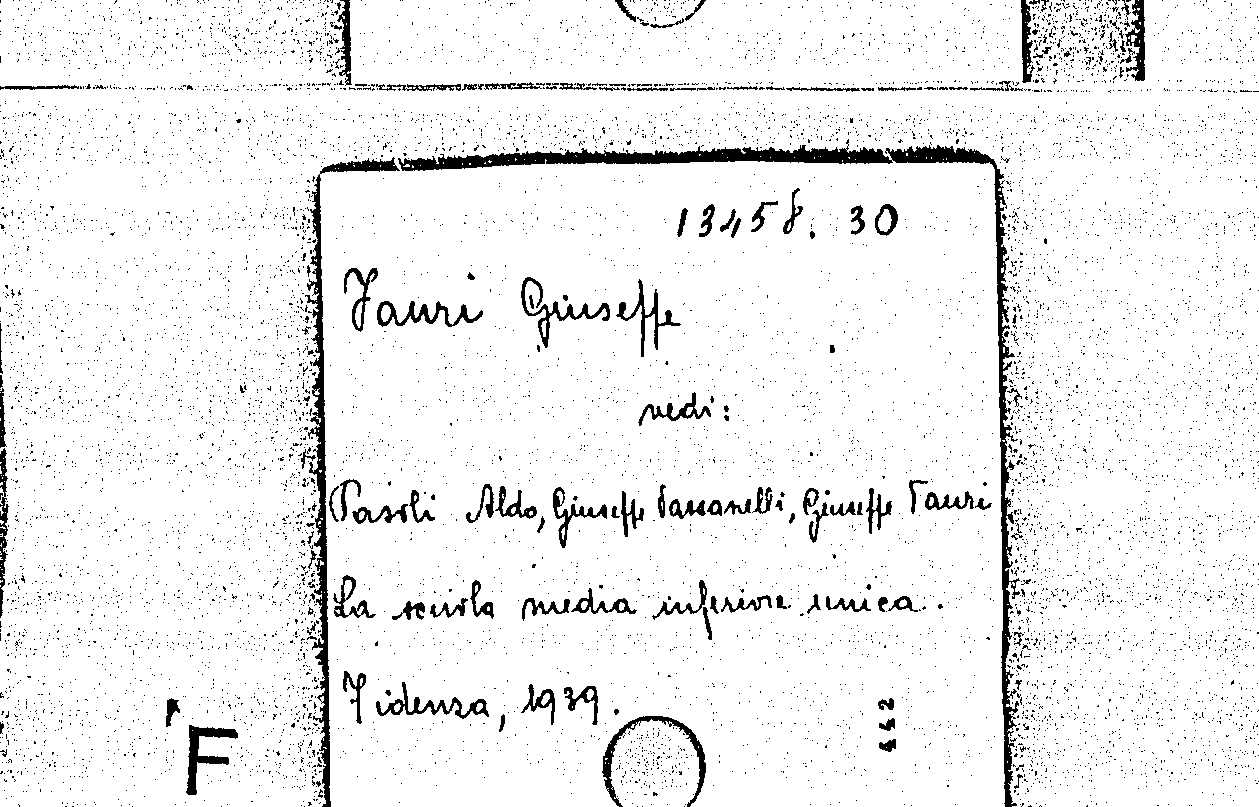 13458. 30
Fauri Giuseppe
vedi:
Pasoli Aldo, Giuseppe , Giuseppe Fauri
La scuola media inferiore unica.
Fidenza, 1939.
442
F